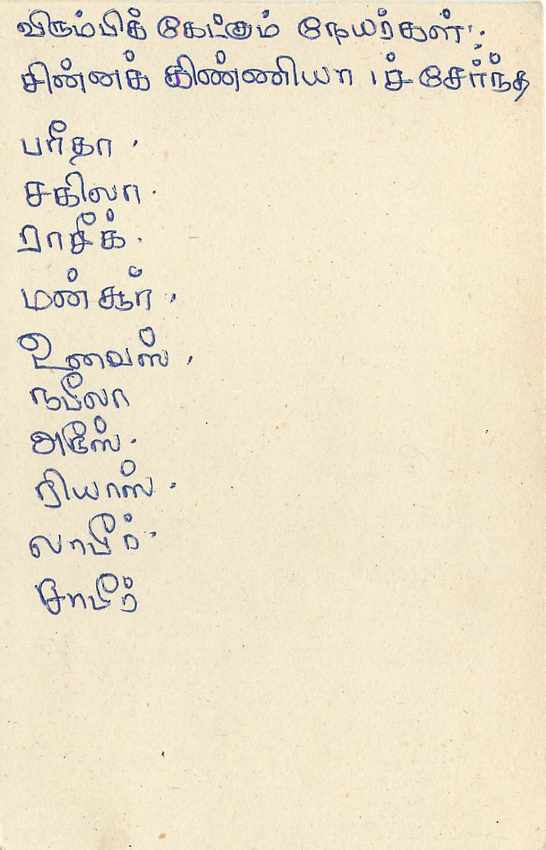 விரும்பிக் கேட்கும் நேயர்கள்.
சின்னக் கிண்ணியா 1ச் சேர்ந்த
பரீதா.
சகிலா.
றாசீக்.
மன்சூர்.
உவைஸ்.
நபீலா
அதீஸ்.
றியாஸ்.
லாபீர்.
சாபீர்